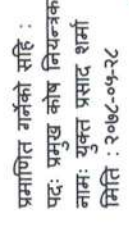 प्रमाणित गर्नेको सहि :
पदः प्रमुख कोष नियन्त्रक
नामः युक्त प्रसाद शर्मा
मिति : २०७८-०५-२८